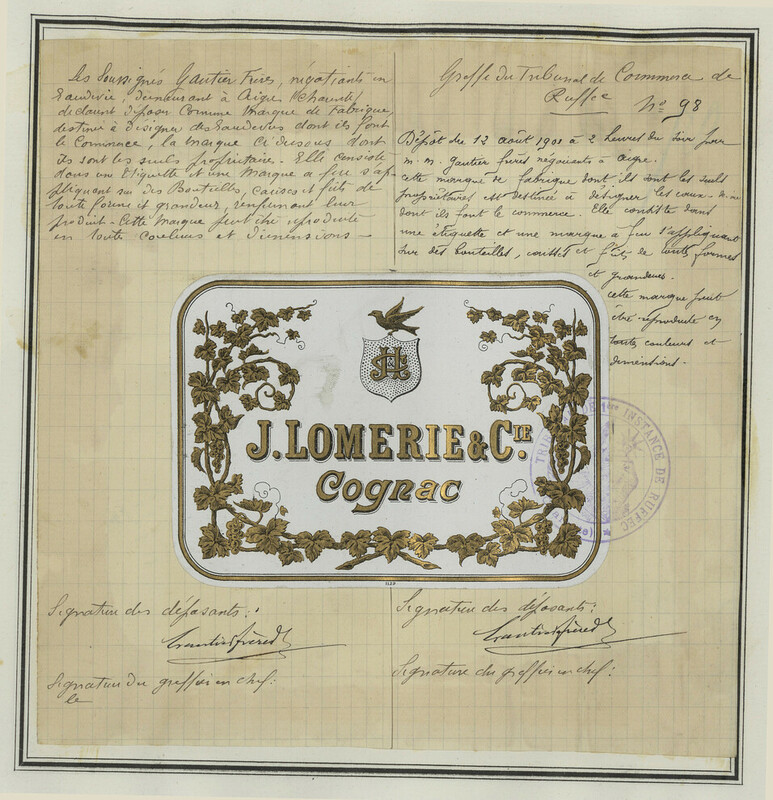 Les Soussignés Gautier Frères, négociants en
Eaudevie, demeurant à Aigre (Charente)
déclarent déposer Comme Marque de Fabrique,
destinée à désigner des Eaudevies dont ils font
le Commerce, la Marque Ci dessous dont
ils sont les seuls propriétaires. Elle consiste
dans un Etiquette et une Marque a feu s'ap-
pliquant sur des Bouteilles, caisses et fûts de
toute forme et grandeur, renfermant leur
produit. Cette Marque peut être reproduite
en toutes couleurs et dimensions
Greffe du Tribunal de Commerce de
Ruffec No 98
Dépôt du 12 août 1901 à 2 heures du soir par
m. m. gautier frères négociants à aigre.
cette marque de fabrique dont ils sont les seuls
propriétaires est destinée à désigner les eaux-de-vie
dont ils font le commerce. Elle consiste dans
une étiquette et une marque à feu s'appliquant
sur des bouteilles, caisses et fûts de toutes formes
et grandeurs.
cette marque peut
être reproduite en
toutes couleurs et
dimensions.
J. LOMERIE & CIE.
Cognac
TRIBUNAL DE 1ère INSTANCE DE RUFFEC
Signature des déposants:
Gautier frères
Signature du greffier en chef:
le
Signature des déposants:
Gautier frères
Signature du greffier en chef: